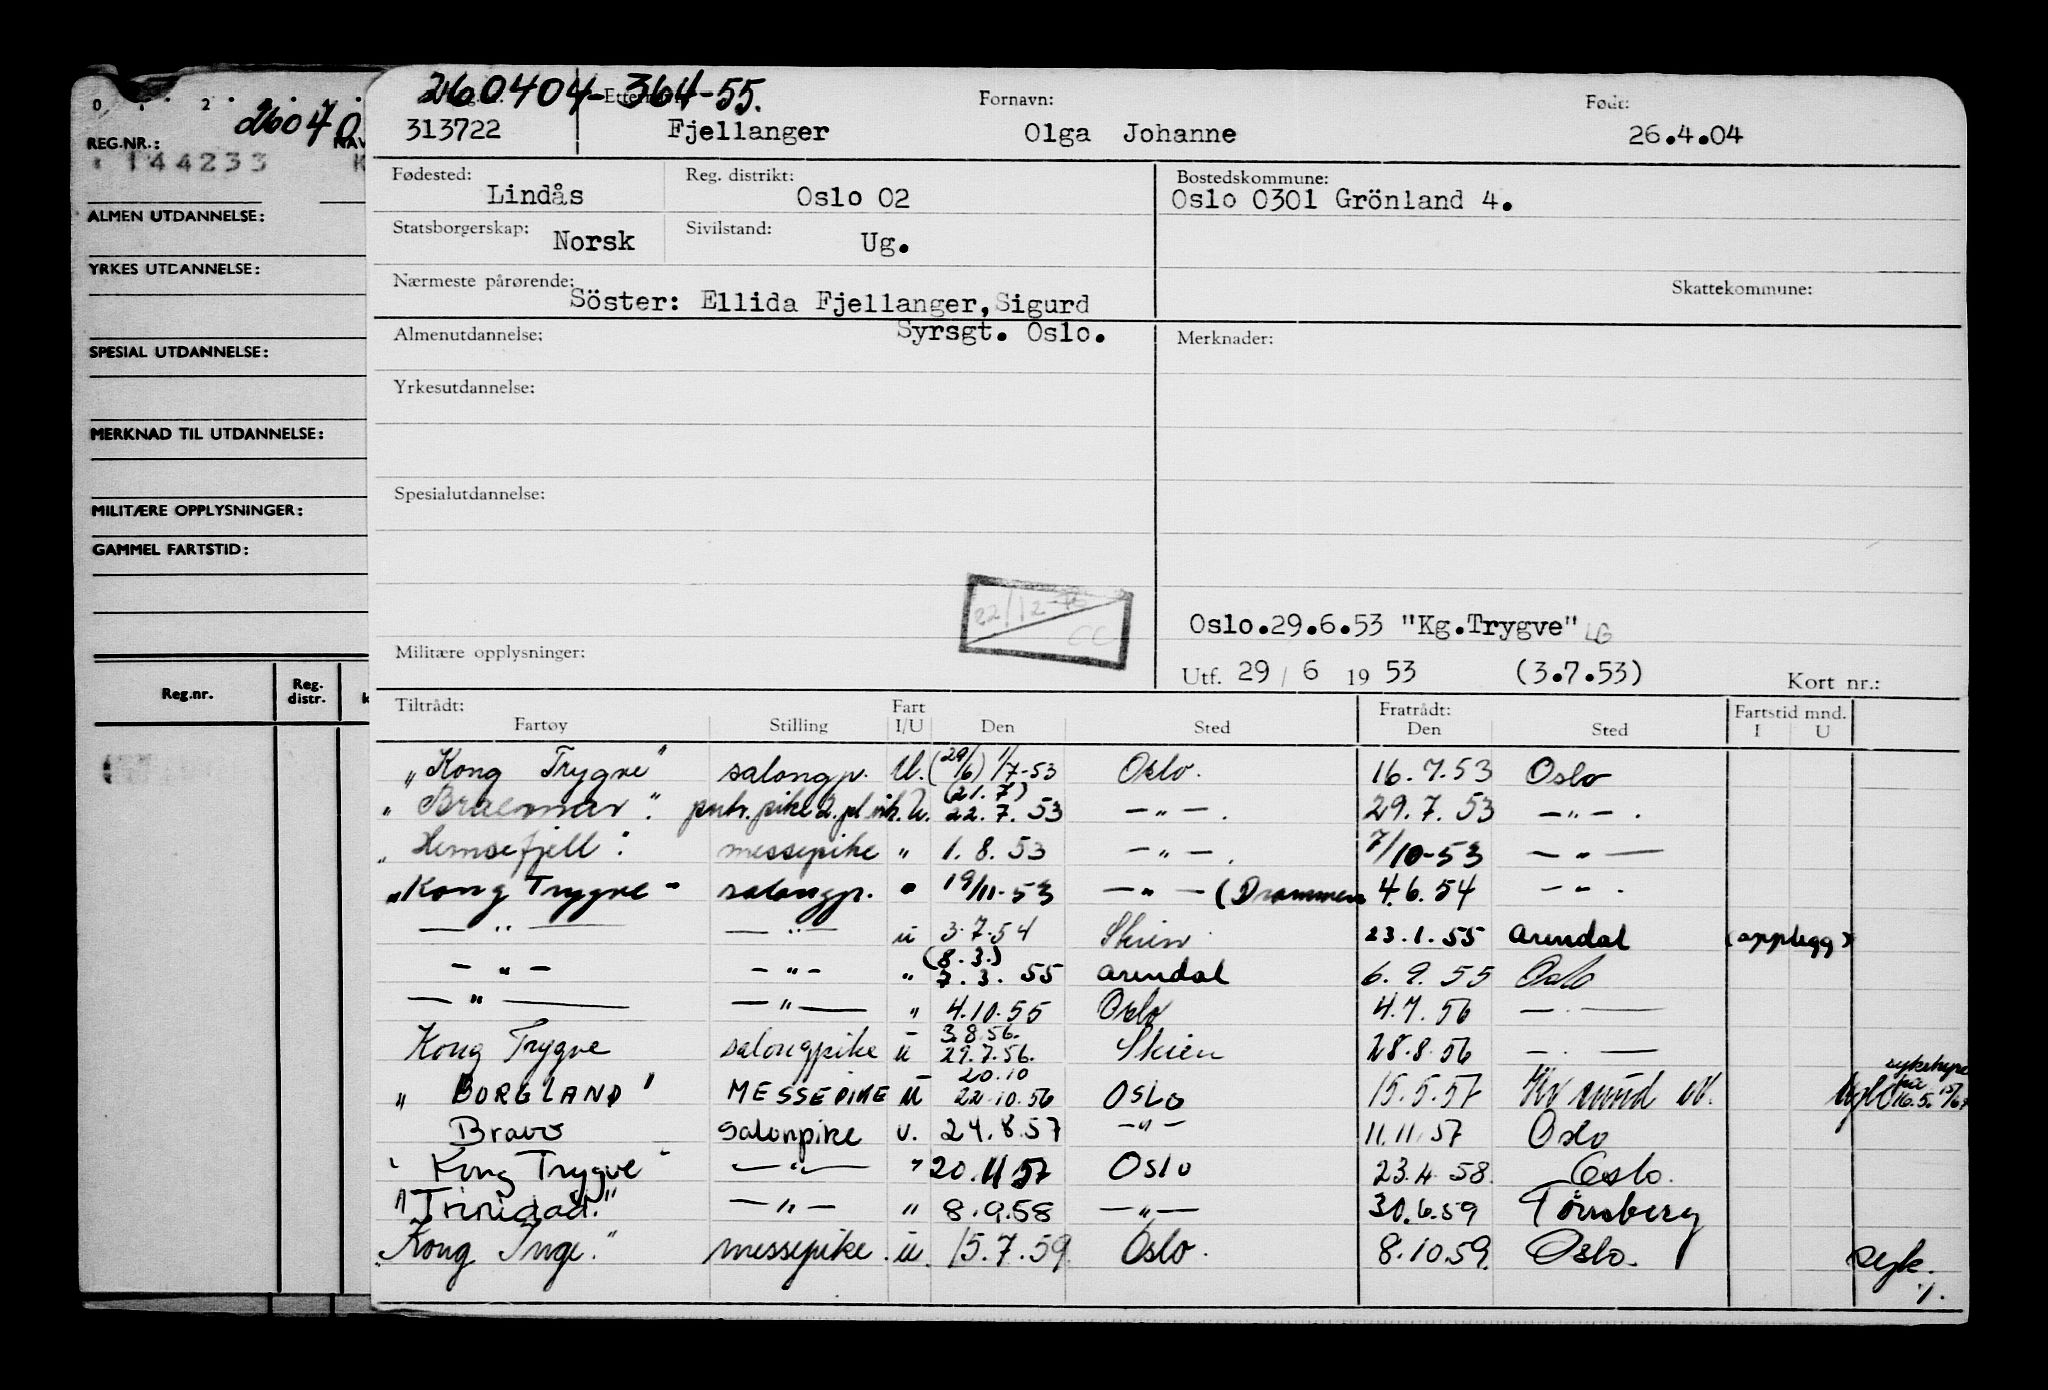 0 1 2
26040
REG.NR.: NAV
144233 K
ALMEN UTDANNELSE:
YRKES UTDANNELSE:
SPESIAL UTDANNELSE:
MERKNAD TIL UTDANNELSE:
MILITÆRE OPPLYSNINGER:
GAMMEL FARTSTID:
Reg.nr. Reg. distr. k
260404-364-55.
Fornavn: Født:
313722 Fjellanger Olga Johanne 26.4.04
Fødested: Reg. distrikt: Bostedskommune:
Lindås Oslo 02 Oslo 0301 Grönland 4.
Statsborgerskap: Norsk Sivilstand: Ug.
Nærmeste pårørende: Skattekommune:
Söster: Ellida Fjellanger, Sigurd
Almenutdannelse: Syrsgt. Oslo. Merknader:
Yrkesutdannelse:
Spesialutdannelse:
22/12- CC
Oslo.29.6.53 "Kg.Trygve" LG
Militære opplysninger:
Utf. 29 / 6 19 53 (3.7.53) Kort nr.:
Tiltrådt: Fart Fratrådt: Fartstid mnd.
Fartøy Stilling I/U Den Sted Den Sted I U
"Kong Trygve" salongp. U. (29/6) 1/7-53 Oslo. 16.7.53 Oslo
"Braemar". pike 2. pl U. (21.7) 22.7.53 —"—. 29.7.53 —"—.
"Hemsefjell". messepike " 1.8.53 —"—. 7/10-53 —"—
"Kong Trygve" salongp. " 19/11-53 —"— (Drammen 4.6.54 —"—.
—"— —"— u 3.7.54 Skien 23.1.55 Arendal (opplegg)
—"— —"— " (8.3.) 7.3.55 Arendal 6.9.55 Oslo
—"— —"— " 4.10.55 Oslo 4.7.56 —"—
Kong Trygve salongpike u 3.8.56. 29.7.56. Skien 28.8.56 —"—
"BORGLAND" MESSEPIKE u 20.10 22.10.56 OSLO 15.5.57 16.5.
Bravo Salonpike u. 24.8.57 —"— 11.11.57 Oslo
"Kong Trygve" —"— " 20.11.57 Oslo 23.4.58. Oslo.
"Trinidad." —"— " 8.9.58 —"— 30.6.59 Tønsberg
"Kong Inge." messepike. u. 15.7.59 Oslo. 8.10.59. Oslo. syk.